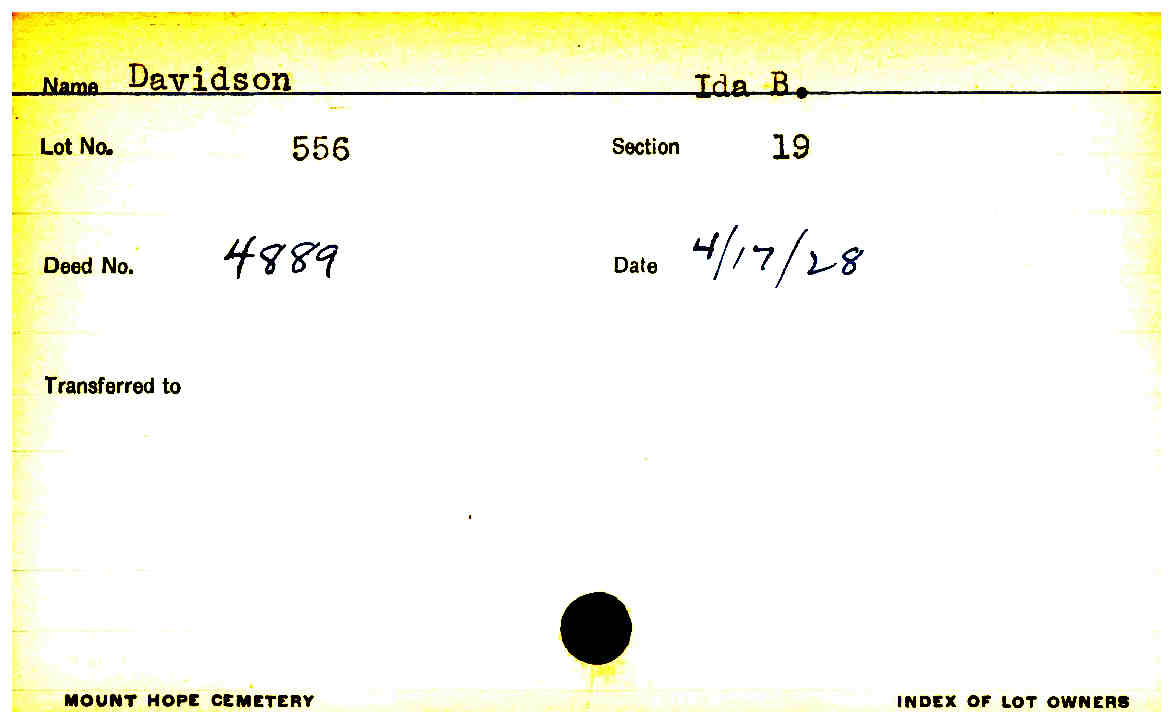 Name Davidson Ida B.
Lot No. 556 Section 19
Deed No. 4889 Date 4/17/28
Transferred to
MOUNT HOPE CEMETERY INDEX OF LOT OWNERS